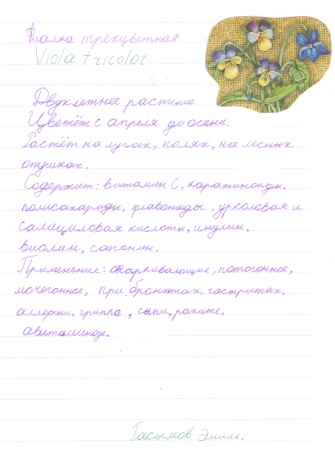 Фиалка трёхцветная
Viola tricolor
Двухлетнее растение.
Цветёт с апреля до осени.
Растёт на лугах, полях, на лесных
опушках.
Содержит: витамин С, каратиноиды,
полисахариды, флавоноиды, урсоловая и
салициловая кислоты, инулин,
виолин, сапонины.
Применение: отхаркивающие, потогонное,
мочегонное, при бронхитах, гастритах,
аллергии, гриппа, сыпи, рахите,
авитаминозе.
Гасымов Эмиль.